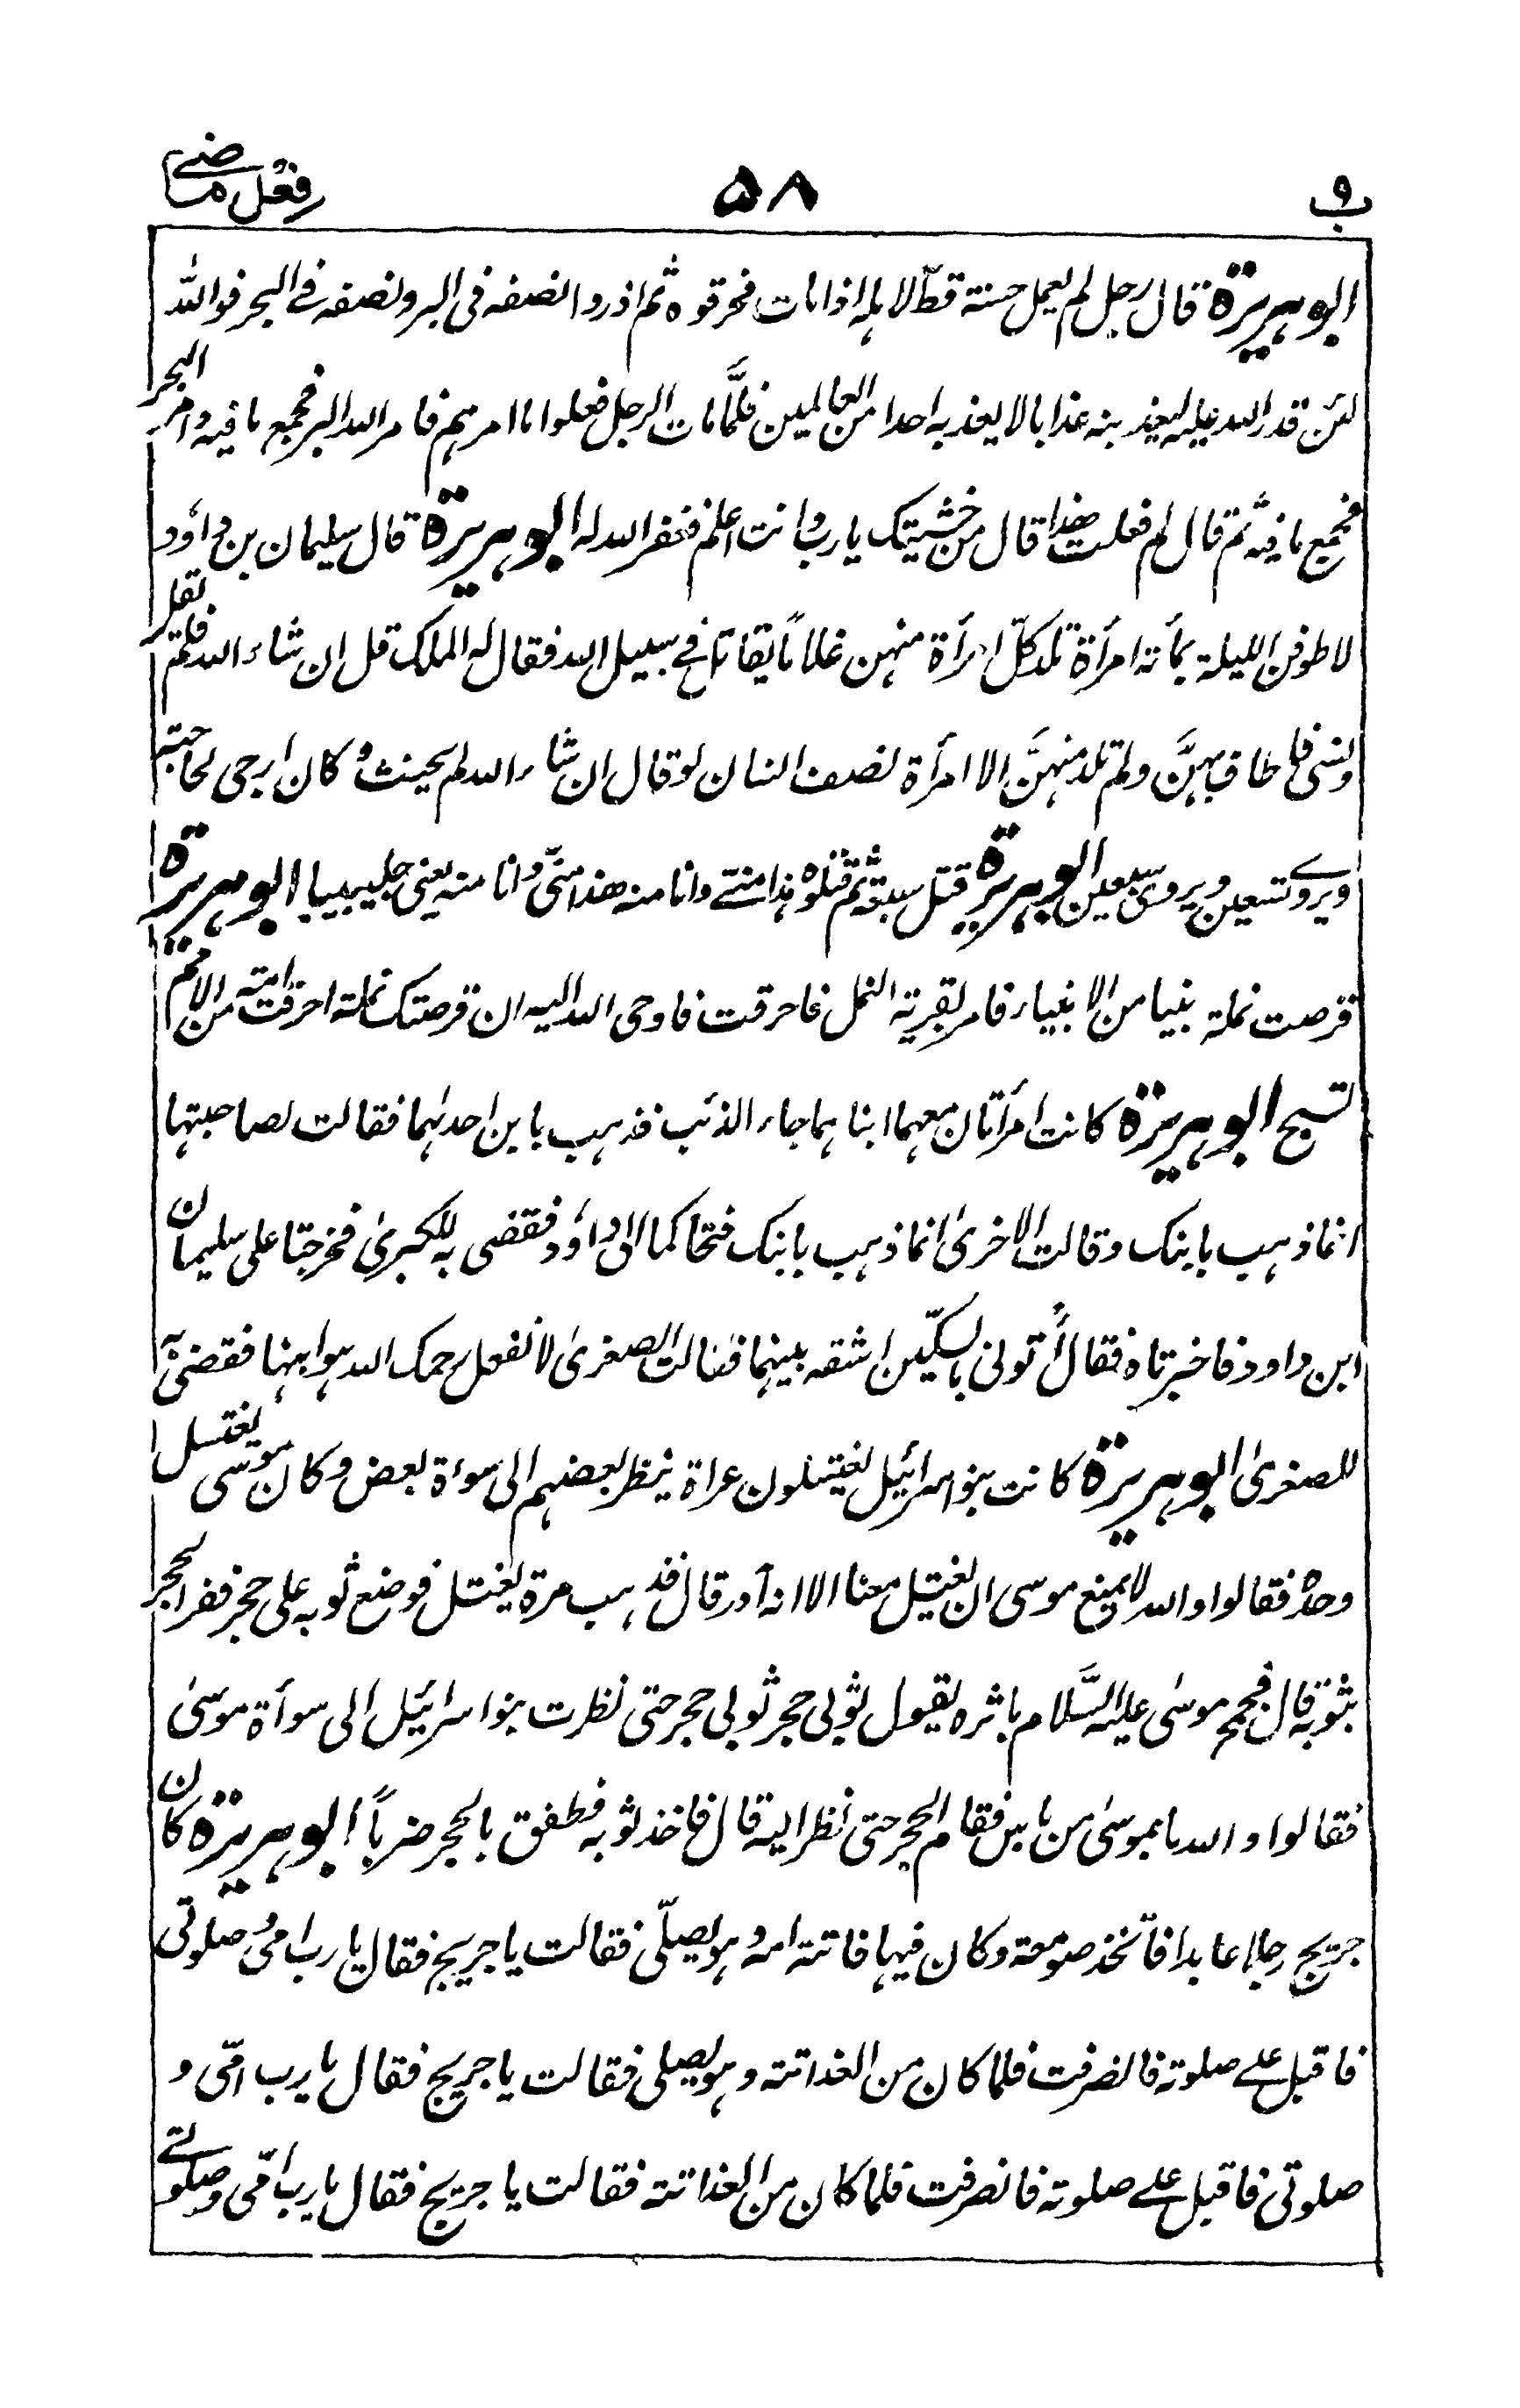 ب ۹ ۵۸ فعل ماضے
ابوہریرۃ قال رجل لم یعمل حسنة قطّ لاہلہ اذا مات فحرقوہ ثم اذروا نصفه فی البر ونصفه فے البحر فواللہ
لئن قدر اللہ علیہ لیعذبنه عذابا لا یعذبہ احدا من العالمین فلمَّا مات الرجل فعلوا ما امرہم فامر اللہ البر فجمع ما فیہ وامر البحر
فجمع ما فیہ ثم قال لم فعلت ھذا قال من خشیتک یا رب وانت اعلم فغفر اللہ لہ ابوہریرۃ قال سلیمان بن داؤد
لاطوفن اللیلة بمائة امرأة تلد کلّ امرأة منہن غلاماً یقاتل فے سبیل اللہ فقال لہ الملک قل ان شاء اللہ فلم یقل
ونسی فاطاف بہنَّ ولم تلد منہنَّ الا امرأة نصف انسان لو قال ان شاء اللہ لم یحنث وکان ارجی لحاجتہ
ویروے تسعین ویروی سبعین ابوہریرۃ قتل سبعة ثم قتلوہ ہذا منے وانا منه ھذا منّی وانا منه یعنی جلیبیبا ابوہریرۃ
قرصت نملة نبیا من الانبیاء فامر بقریة النمل فاحرقت فاوحی اللہ الیہ ان قرصتک نملة احرقت امة من الامم
تسبح ابوہریرۃ کانت امرأتان معہما ابناہما جاء الذئب فذہب بابن احدٰہما فقالت لصاحبتہا
انما ذہب بابنک وقالت الاخریٰ انما ذہب بابنک فتحاکما الیٰ داؤد فقضی بہ للکبریٰ فخرجتا علی سلیمان
ابن داود فاخبرتاہ فقال أتونی بالسکّین اشقه بینہما فقالت الصغریٰ لا تفعل رحمک اللہ ہو ابنہا فقضیٰ بہ
للصغریٰ ابوہریرۃ کانت بنو اسرائیل یغتسلون عراة ینظر بعضہم الی سوءة بعض وکان موسی یغتسل
وحدہ فقالوا واللہ لا یمنع موسی ان یغتسل معنا الا انه آدر قال فذہب مرة یغتسل فوضع ثوبه علی حجر ففر الحجر
بثوبه قال فجمح موسیٰ علیہ السَّلام باثرہ یقول ثوبی حجر ثوبی حجر حتی نظرت بنو اسرائیل الی سوأة موسیٰ
فقالوا واللہ ما بموسیٰ من باس فقام الحجر حتی نظر الیہ قال فاخذ ثوبه فطفق بالحجر ضرباً ابوہریرۃ کان
جریج رجلا عابدا فاتخذ صومعة وکان فیہا فاتته امہ وہو یصلّی فقالت یا جریج فقال یا رب امی وصلوتی
فاقبل علے صلوته فانصرفت فلما کان من الغد اتته وہو یصلی فقالت یا جریج فقال یا رب امّی و
صلوتی فاقبل علے صلوته فانصرفت فلما کان من الغد اتته فقالت یا جریج فقال یا رب امّی وصلوتے